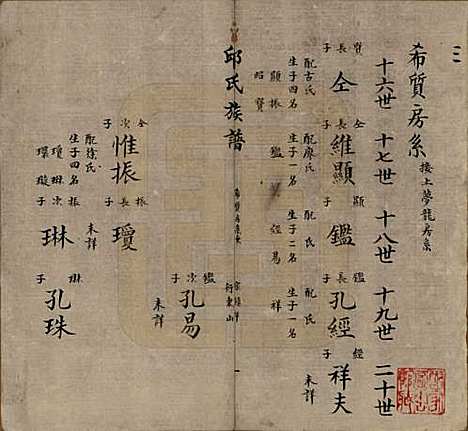 希質房系 接上夢龍房系
十六世 十七世 十八世 十九世 二十世
質長子 仝 配古氏 生子四名 顯 振 賢 昭
仝長子 維顯 配廖氏 生子一名 鑑
顯長子 鑑 配氏 生子二名 經 易
鑑長子 孔經 配氏 生子一名 祥
經子 祥夫 未詳
邱氏族譜
鑑次子 孔易 未詳
仝次子 惟振 配徐氏 生子四名 瓊 琳 璟 璇
振長子 瓊 未詳
次子 琳
琳子 孔珠